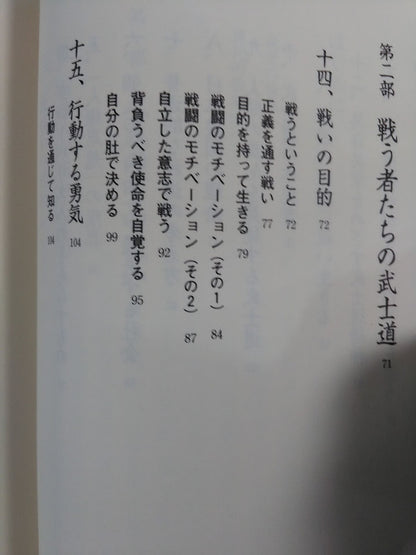 第二部 戦う者たちの武士道 71
十四、戦いの目的 72
戦うということ 72
正義を通す戦い 77
目的を持って生きる 79
戦闘のモチベーション(その1) 84
戦闘のモチベーション(その2) 87
自立した意志で戦う 92
背負うべき使命を自覚する 95
自分の肚で決める 99
十五、行動する勇気 104
行動を通じて知る 104